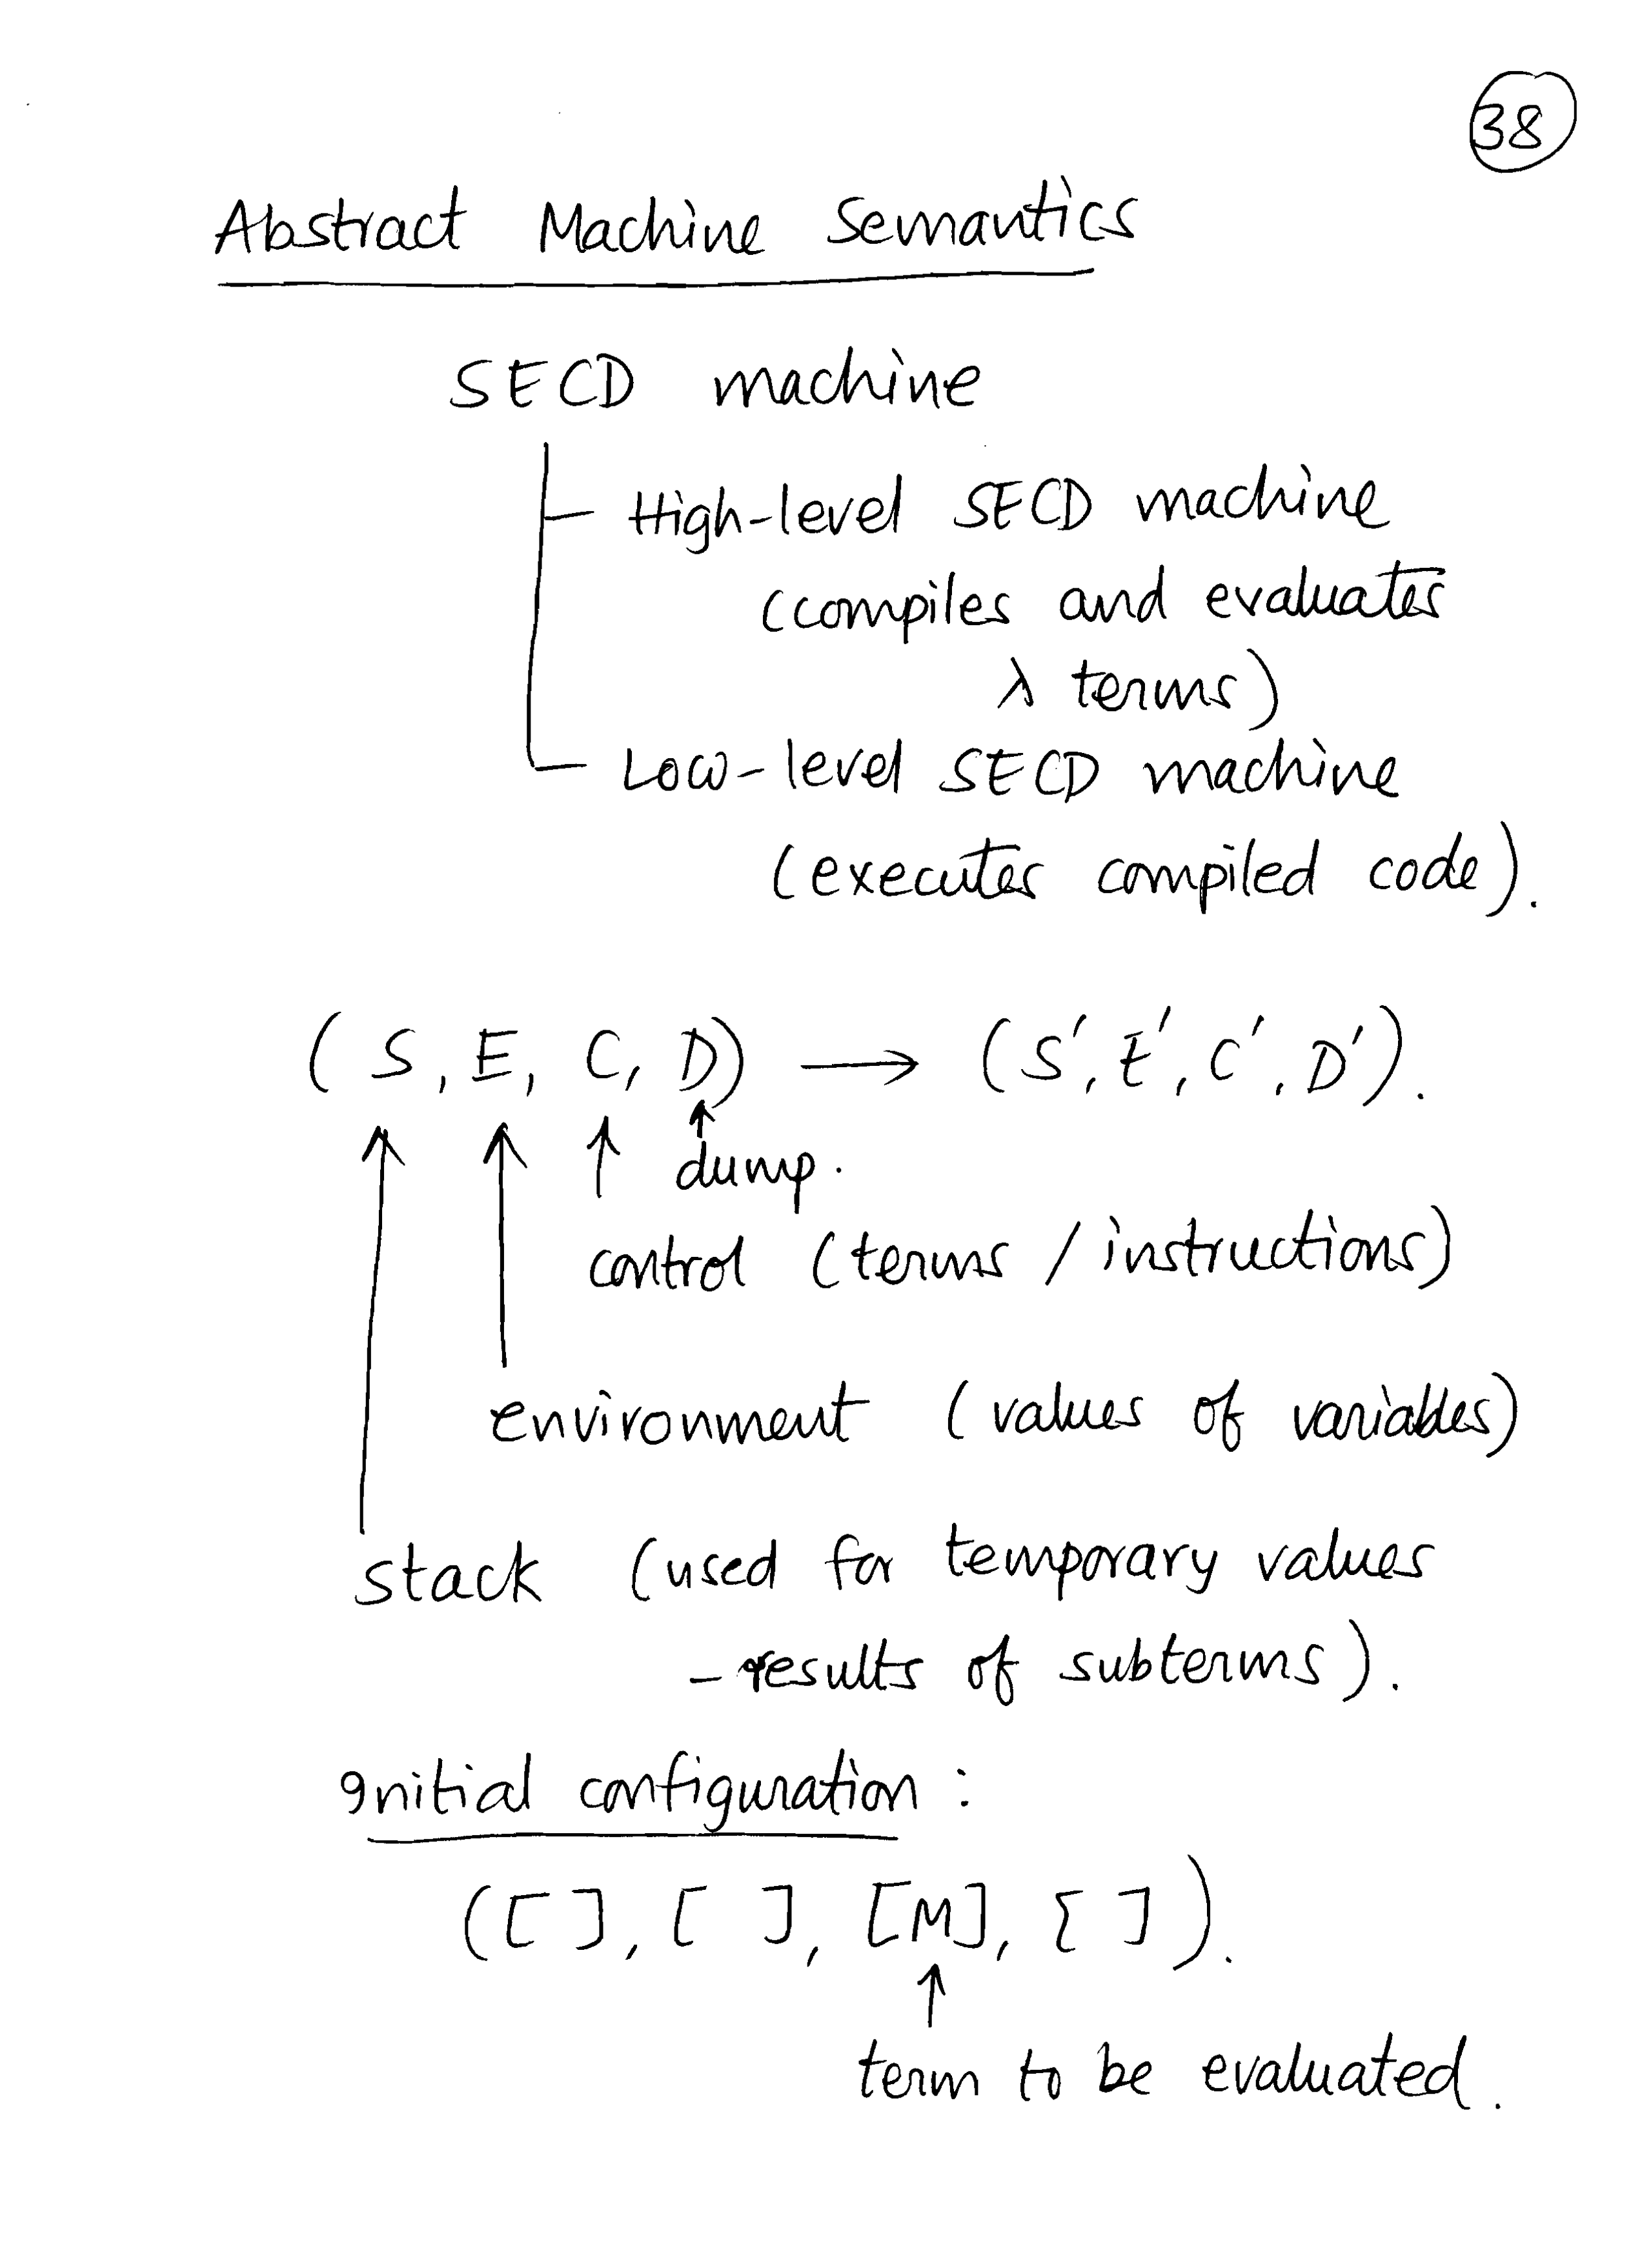 38
Abstract Machine Semantics
SECD machine
High-level SECD machine
(compiles and evaluates
λ terms)
Low-level SECD machine
(executes compiled code).
(S, E, C, D) → (S', E', C', D').
dump.
control (terms / instructions)
environment (values of variables)
stack (used for temporary values
- results of subterms).
Initial configuration :
([ ], [ ], [M], [ ]).
term to be evaluated.